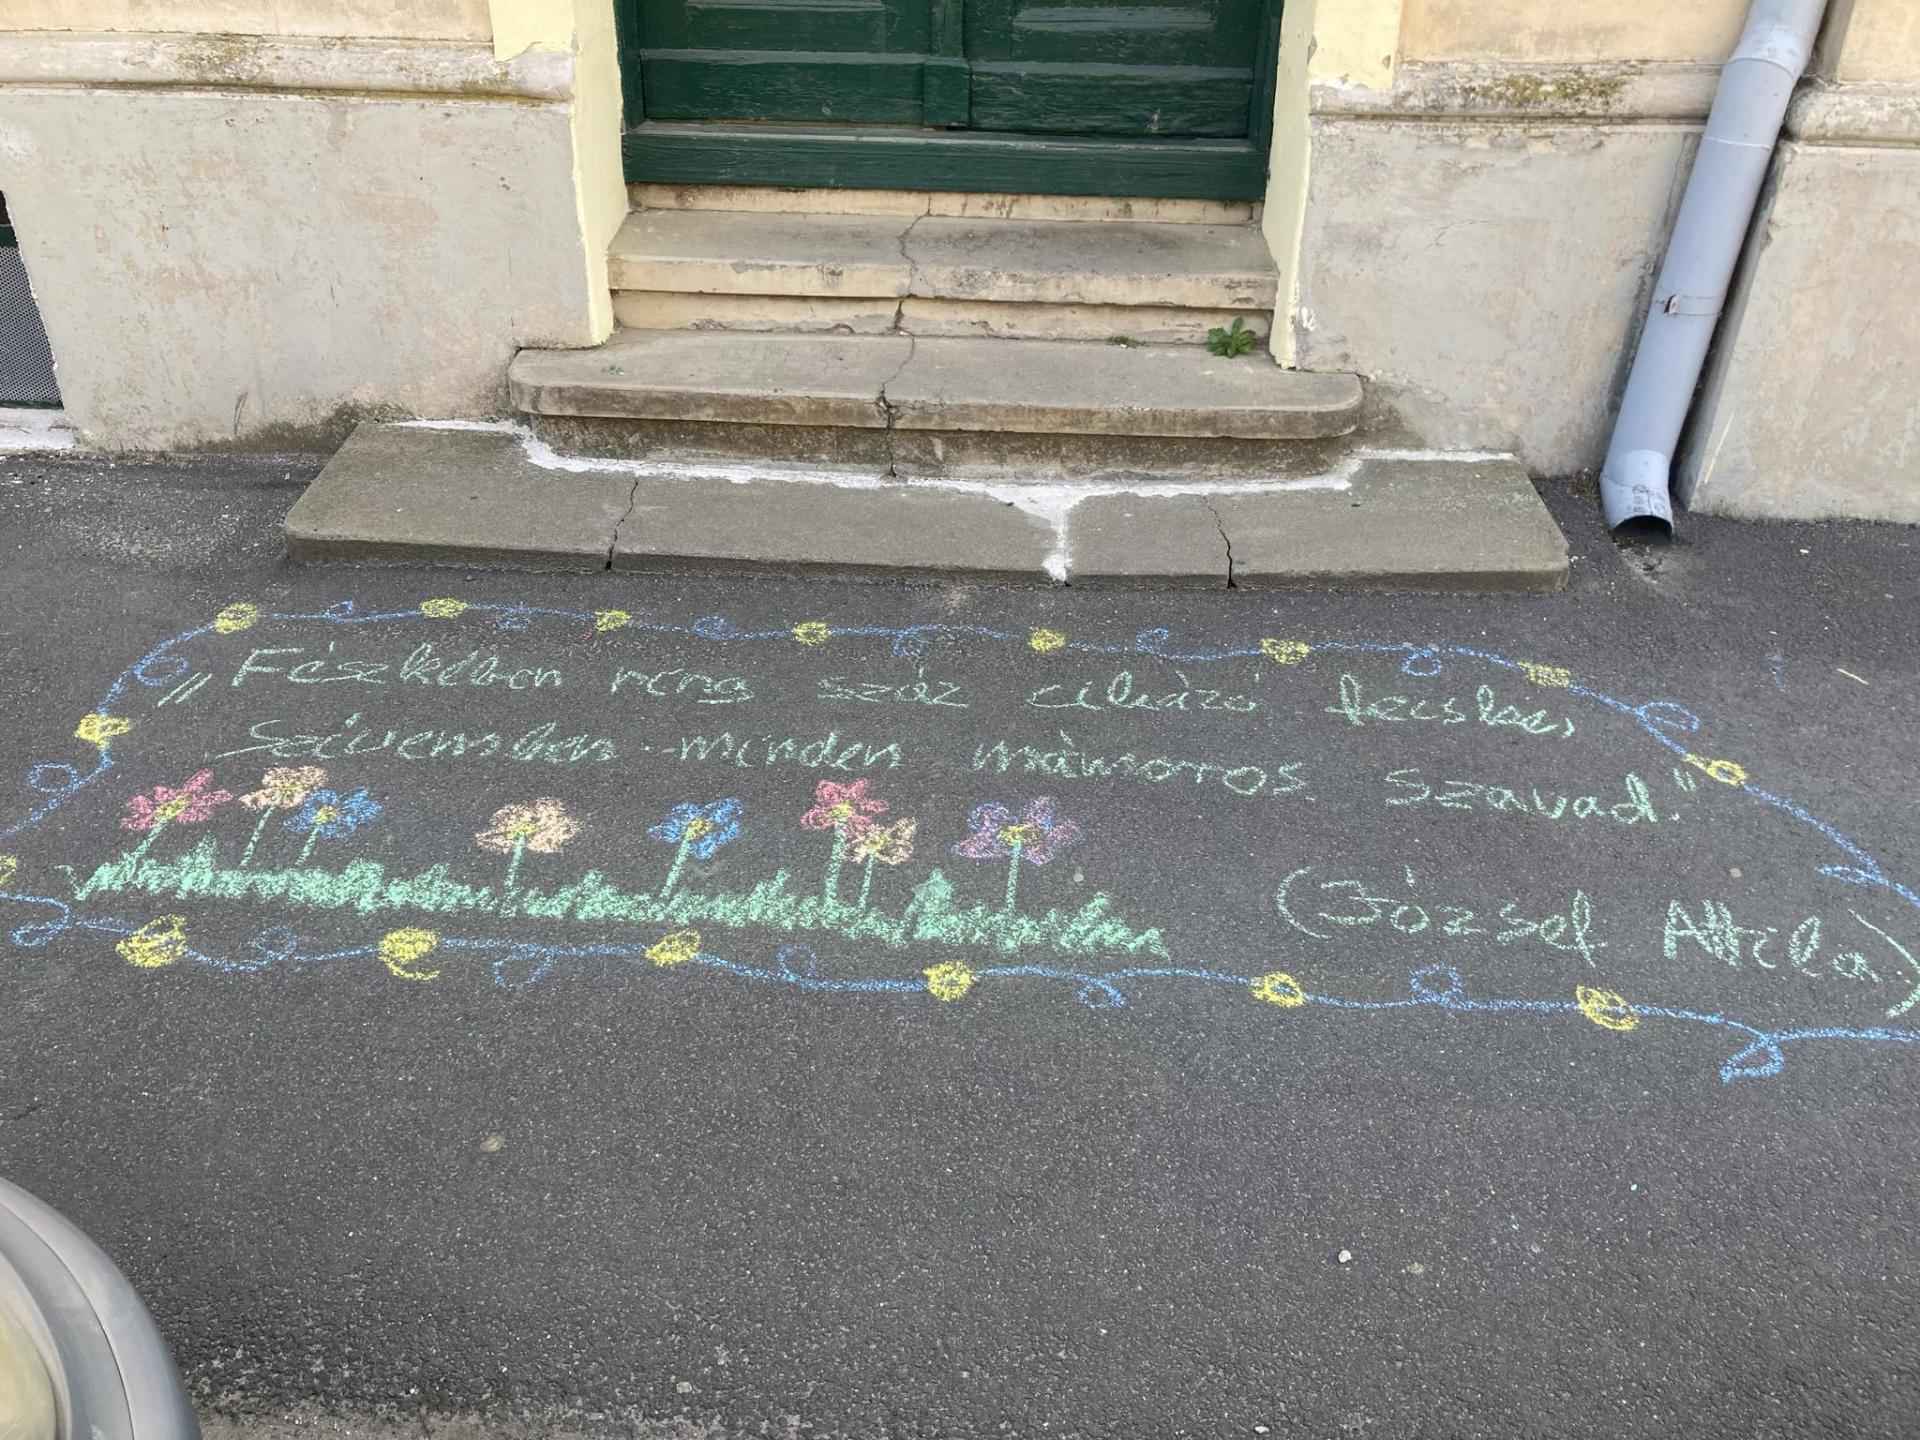 „Fészkében reng száz cikázó fecske,
Szívemben minden mámoros szavad."
(József Attila)